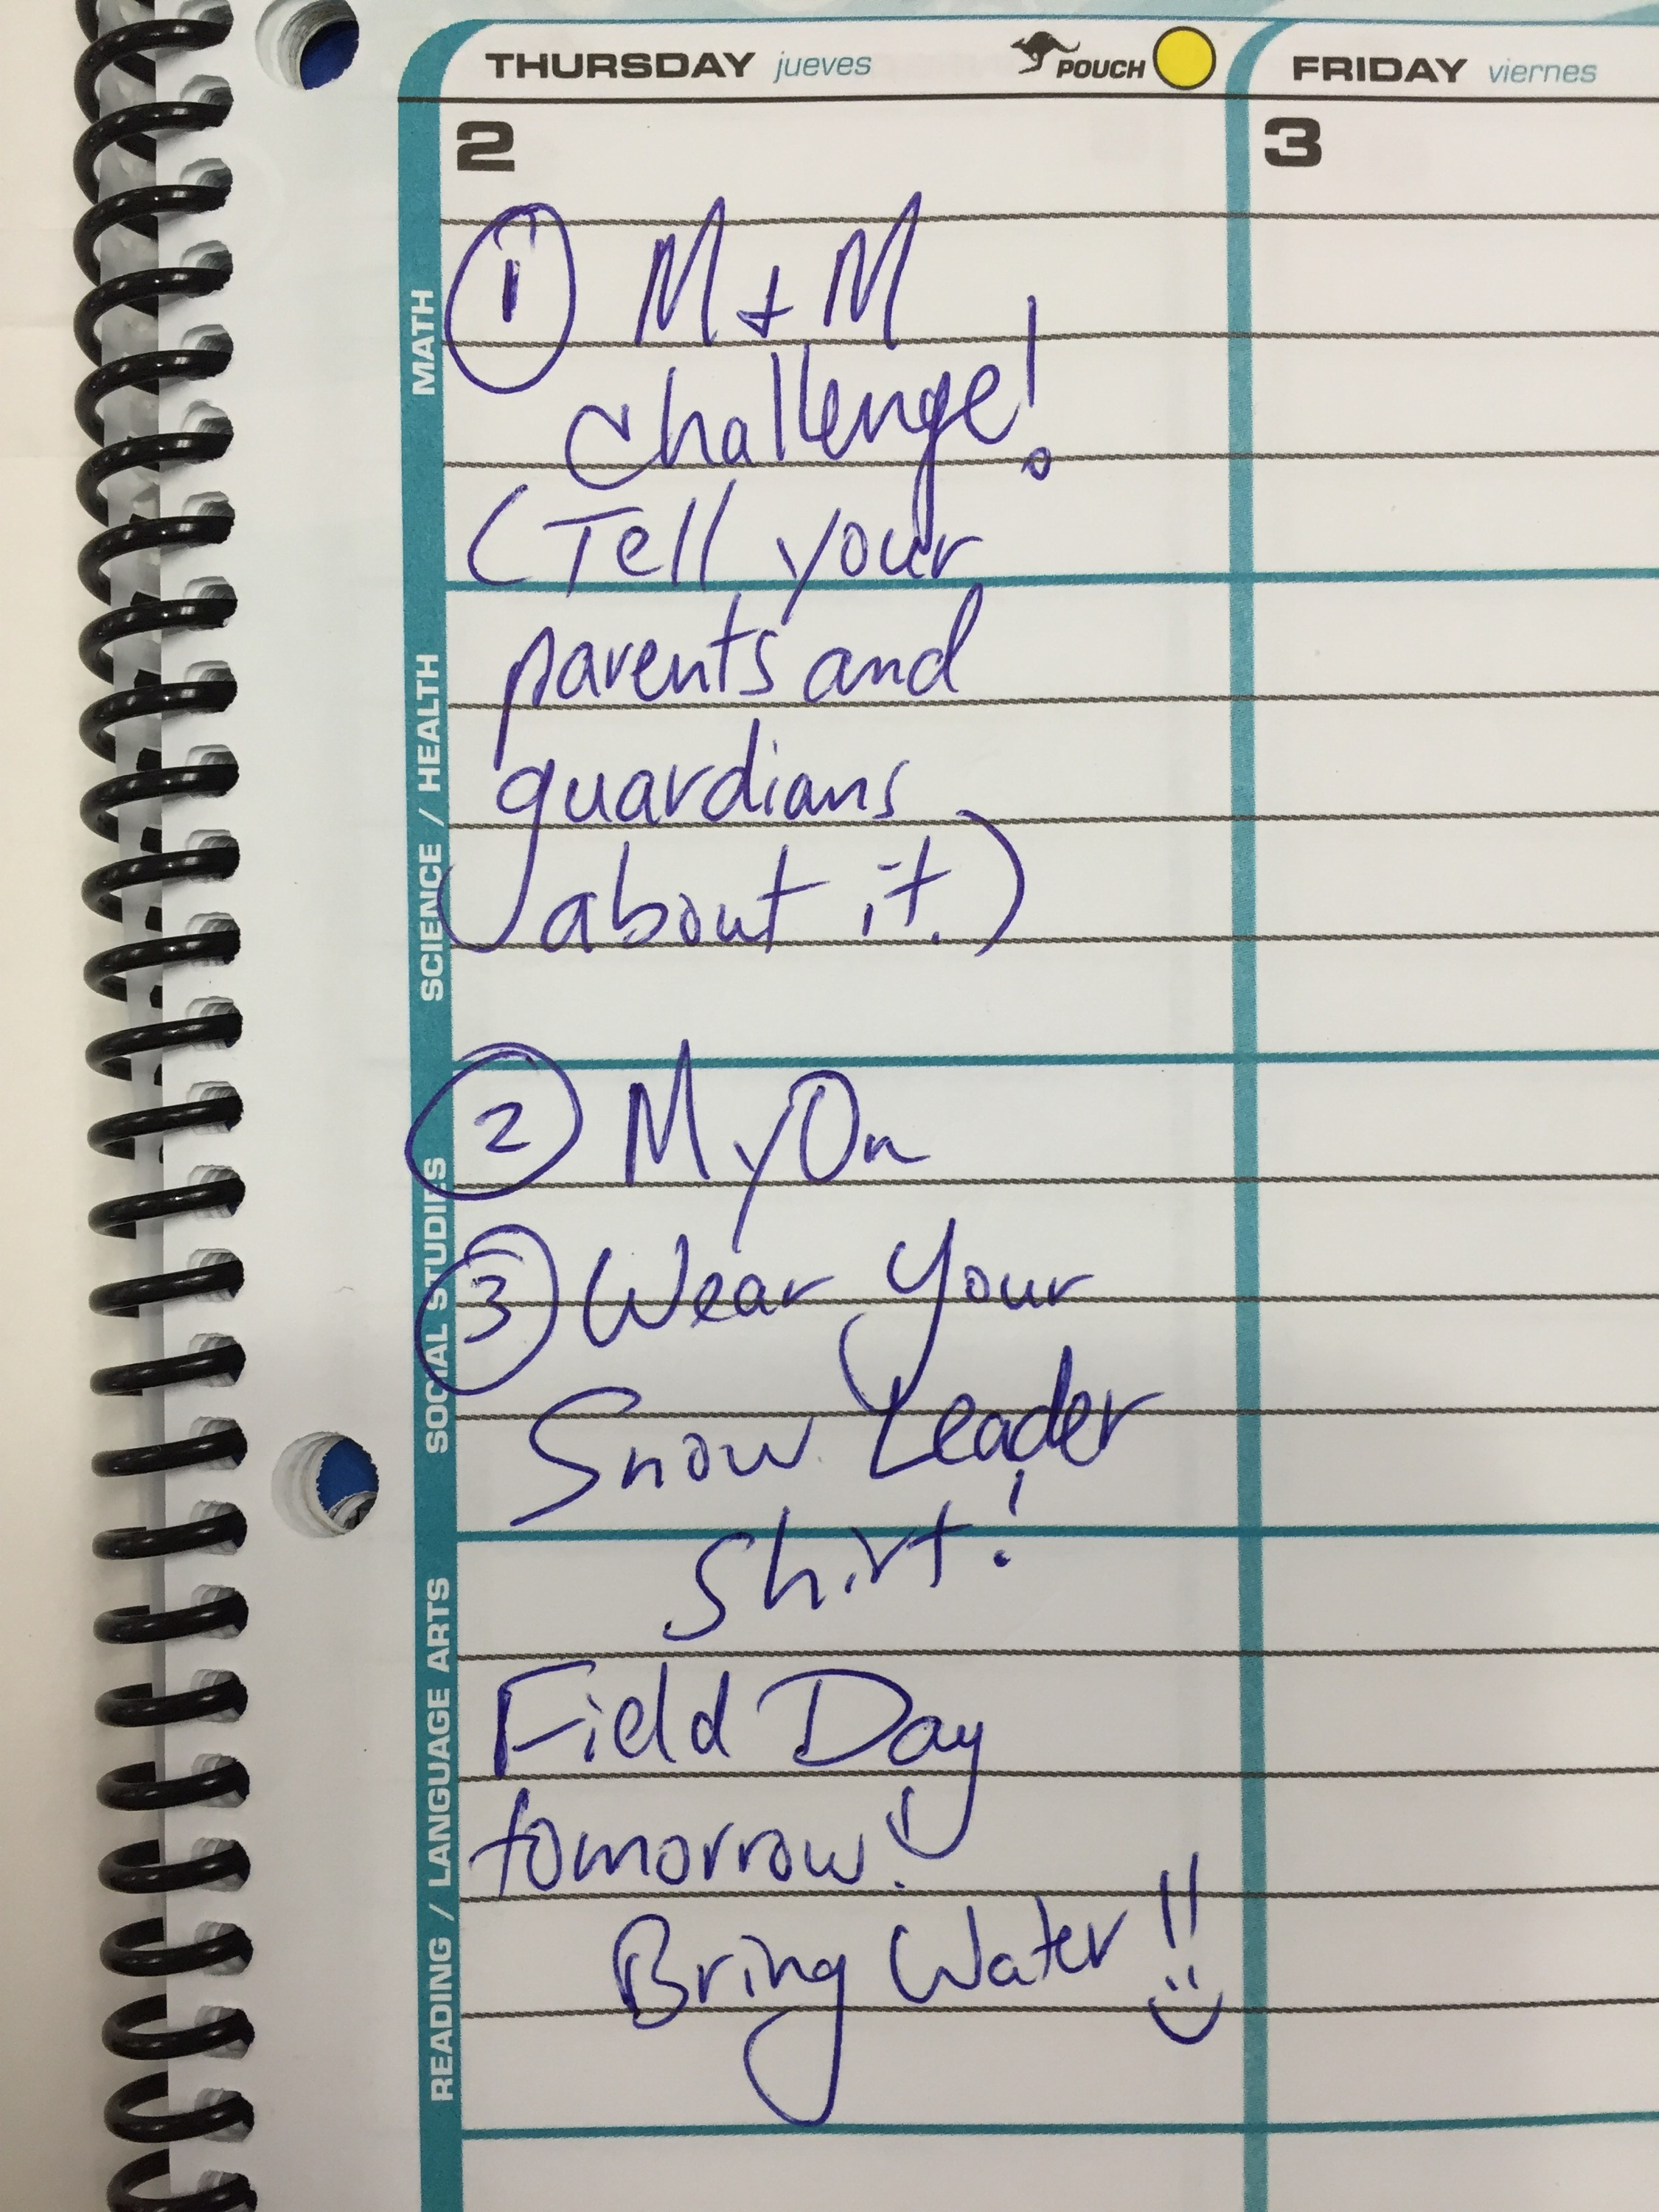 THURSDAY jueves POUCH
FRIDAY viernes
2
3
MATH
① M + M
challenge!
(Tell your
SCIENCE / HEALTH
parents and
guardians
about it.)
SOCIAL STUDIES
② MyOn
③ Wear Your
Snow Leader
Shirt!
READING / LANGUAGE ARTS
Field Day
tomorrow!
Bring Water!!